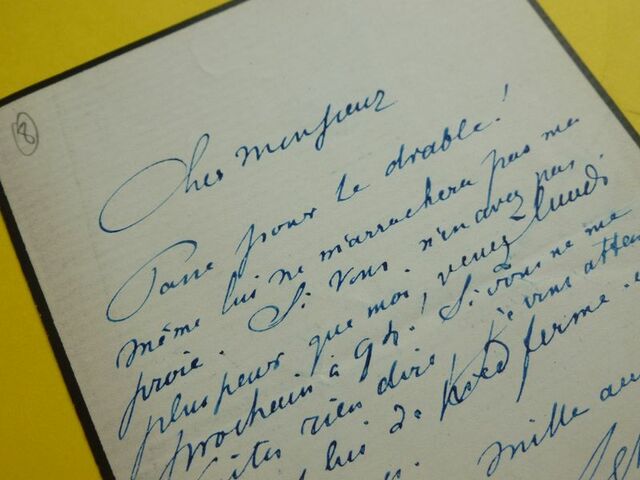 8
Cher Monsieur
Passe pour le diable!
même lui ne m'arrachera pas ma
proie. Si vous n'en avez pas
plus peur que moi, venez lundi
prochain à 9h! Si vous ne me
faites rien dire, je vous atten
lui de pied ferme.
mille